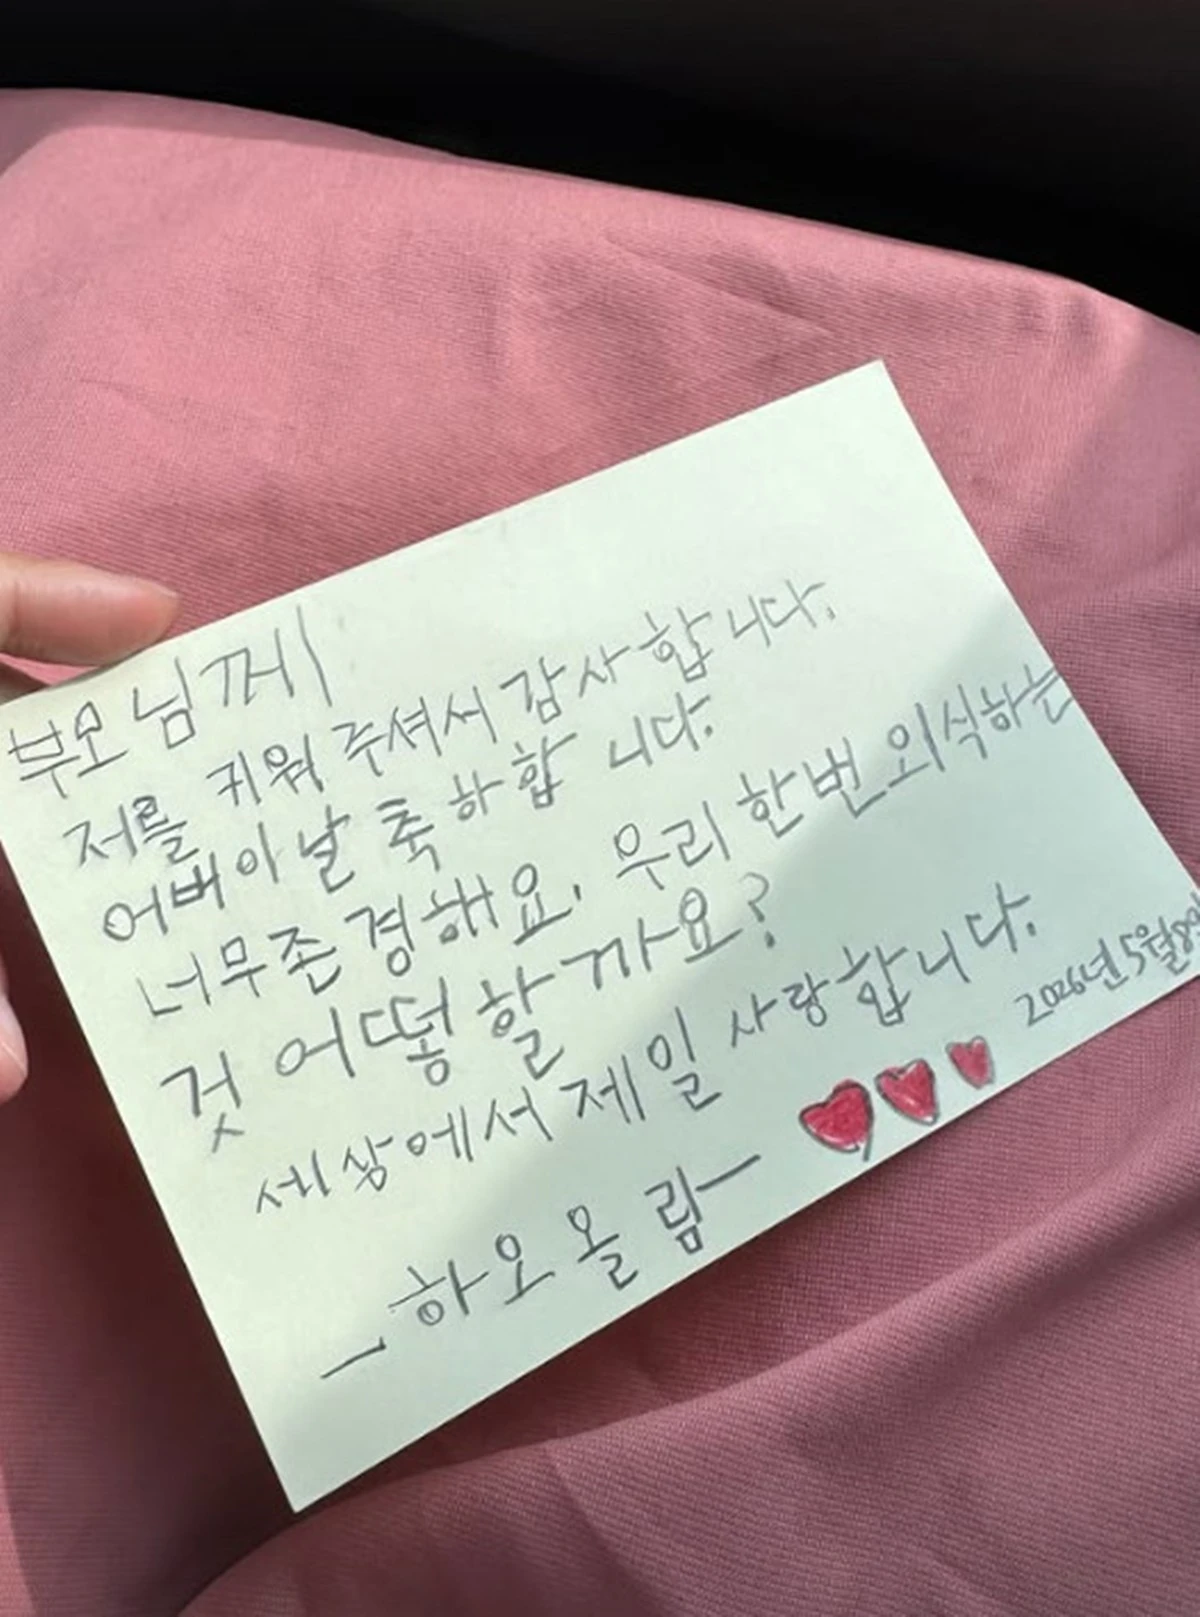 부모님께
저를 키워 주셔서 감사합니다.
어버이날 축하합니다.
너무존경해요. 우리 한번 외식하는
것 어떻할까요?
세상에서 제일 사랑합니다.
2026년 5월8일
- 하오올림-